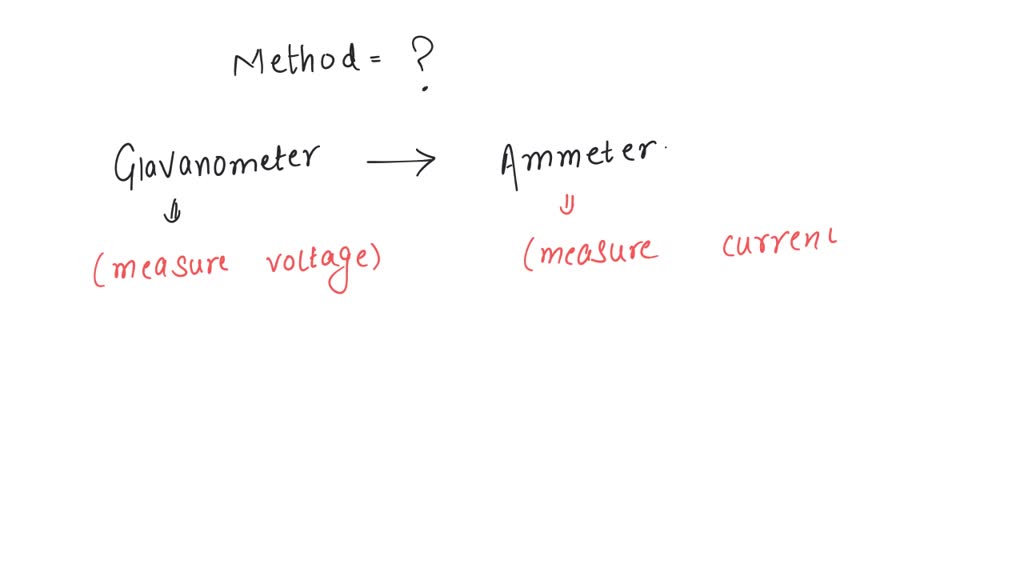 Method = ?
Glavanometer → Ammeter.
(measure voltage) (measure current